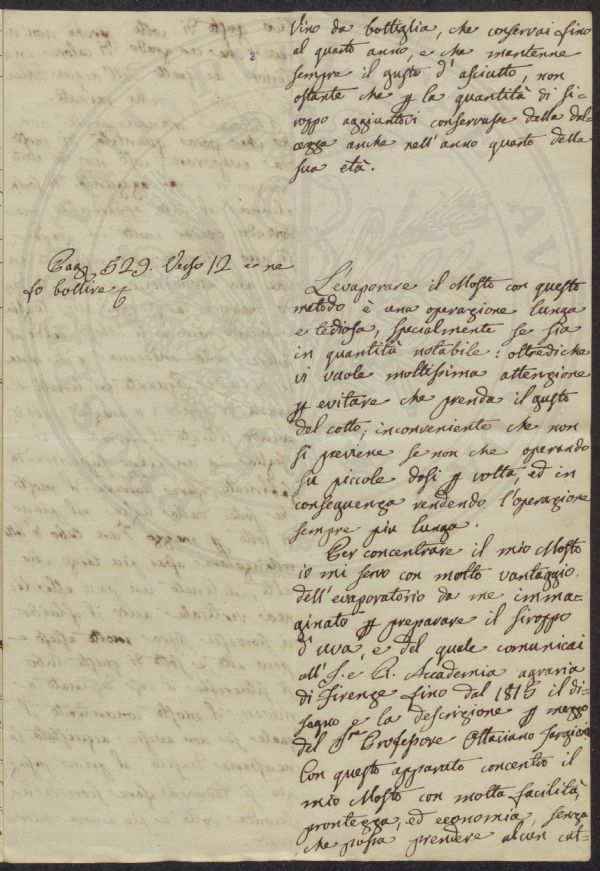 Vino da bottiglia, che conservai fino
al quarto anno, e che mantenne
sempre il gusto d'asciutto, non
ostante che p la quantità di si-
roppo aggiuntovi conservasse della dol-
cezza anche nell'anno quarto della
sua età.
Pag. 529. Verso 12 e ne
fo bollire
L'evaporare il Mosto con questo
metodo è una operazione lunga
e tediosa, specialmente se sia
in quantità notabile: oltrediche
vi vuole moltissima attenzione
p evitare che prenda il gusto
del cotto; inconveniente che non
si previene se non che operando
su piccole dosi p volta, ed in
conseguenza rendendo l'operazione
sempre piu lunga.
Per concentrare il mio Mosto
io mi servo con molto vantaggio
dell'evaporatorio da me imma-
ginato p preparare il siroppo
d'uva, e del quale comunicai
all'I. e R. Accademia agraria
di Firenze fino dal 1815 il di-
segno e la descrizione p mezzo
del Sr. Professore Ottaviano Targioni
Con questo apparato concentro il
mio Mosto con molta facilità,
prontezza, ed economia, senza
che possa prendere alcun cat-